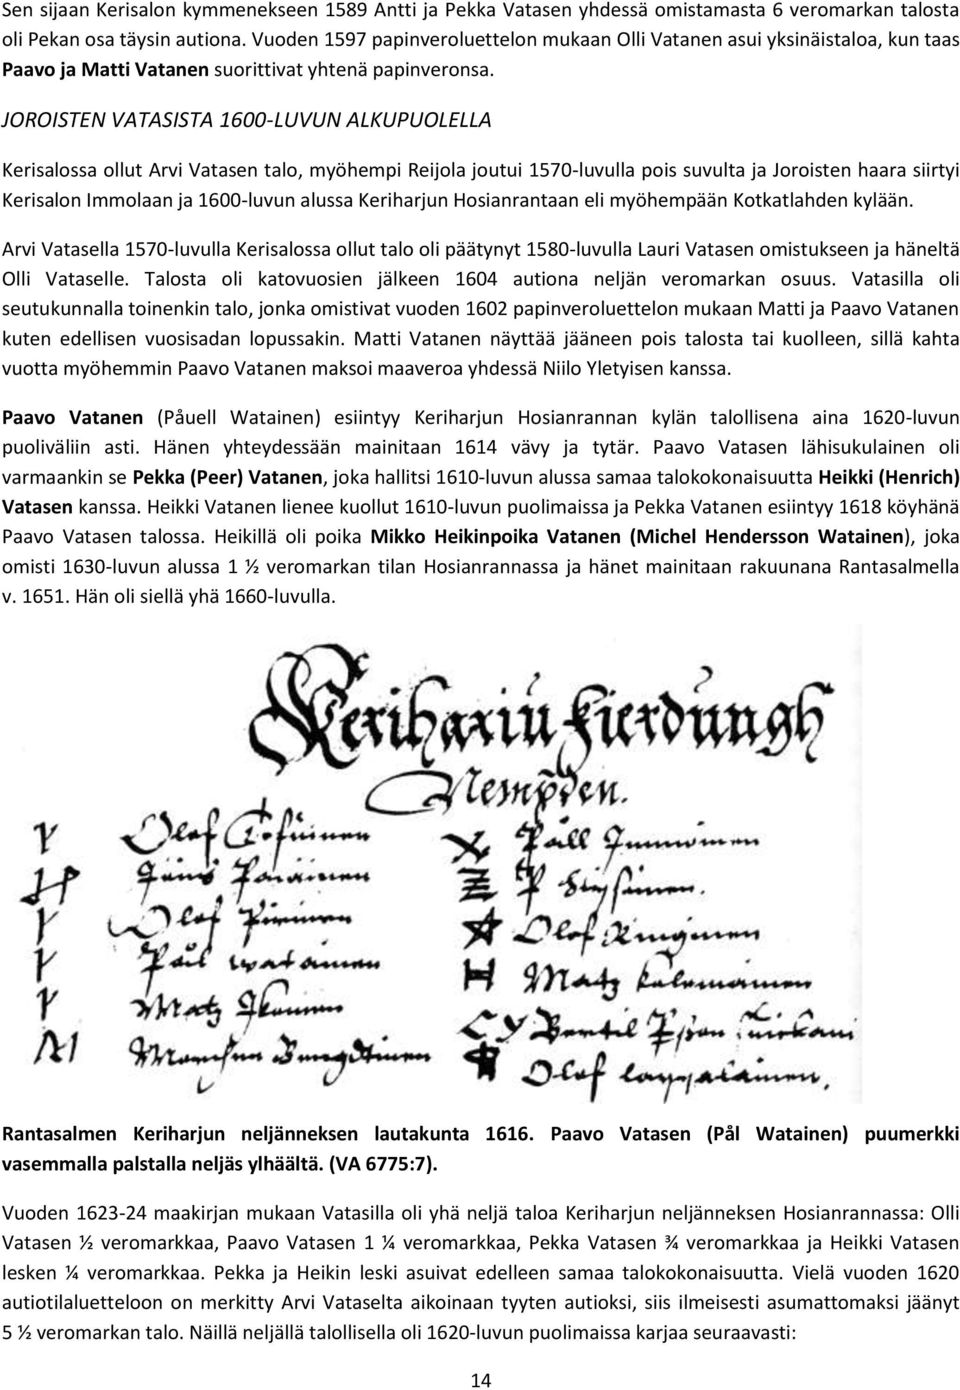 Sen sijaan Kerisalon kymmenekseen 1589 Antti ja Pekka Vatasen yhdessä omistamasta 6 veromarkan talosta
oli Pekan osa täysin autiona. Vuoden 1597 papinveroluettelon mukaan Olli Vatanen asui yksinäistaloa, kun taas
Paavo ja Matti Vatanen suorittivat yhtenä papinveronsa.
JOROISTEN VATASISTA 1600-LUVUN ALKUPUOLELLA
Kerisalossa ollut Arvi Vatasen talo, myöhempi Reijola joutui 1570-luvulla pois suvulta ja Joroisten haara siirtyi
Kerisalon Immolaan ja 1600-luvun alussa Keriharjun Hosianrantaan eli myöhempään Kotkatlahden kylään.
Arvi Vatasella 1570-luvulla Kerisalossa ollut talo oli päätynyt 1580-luvulla Lauri Vatasen omistukseen ja häneltä
Olli Vataselle. Talosta oli katovuosien jälkeen 1604 autiona neljän veromarkan osuus. Vatasilla oli
seutukunnalla toinenkin talo, jonka omistivat vuoden 1602 papinveroluettelon mukaan Matti ja Paavo Vatanen
kuten edellisen vuosisadan lopussakin. Matti Vatanen näyttää jääneen pois talosta tai kuolleen, sillä kahta
vuotta myöhemmin Paavo Vatanen maksoi maaveroa yhdessä Niilo Yletyisen kanssa.
Paavo Vatanen (Påuell Watainen) esiintyy Keriharjun Hosianrannan kylän talollisena aina 1620-luvun
puoliväliin asti. Hänen yhteydessään mainitaan 1614 vävy ja tytär. Paavo Vatasen lähisukulainen oli
varmaankin se Pekka (Peer) Vatanen, joka hallitsi 1610-luvun alussa samaa talokokonaisuutta Heikki (Henrich)
Vatasen kanssa. Heikki Vatanen lienee kuollut 1610-luvun puolimaissa ja Pekka Vatanen esiintyy 1618 köyhänä
Paavo Vatasen talossa. Heikillä oli poika Mikko Heikinpoika Vatanen (Michel Hendersson Watainen), joka
omisti 1630-luvun alussa 1 ½ veromarkan tilan Hosianrannassa ja hänet mainitaan rakuunana Rantasalmella
v. 1651. Hän oli siellä yhä 1660-luvulla.
Kerihariu fierdungh
Nempden.
Olaf
Olaf Pirinen
Påll watainen
Matz Ikonen
Påll Immoinen
Olaf Ringinen
Matz
Bertil
Olaf
Rantasalmen Keriharjun neljänneksen lautakunta 1616. Paavo Vatasen (Pål Watainen) puumerkki
vasemmalla palstalla neljäs ylhäältä. (VA 6775:7).
Vuoden 1623-24 maakirjan mukaan Vatasilla oli yhä neljä taloa Keriharjun neljänneksen Hosianrannassa: Olli
Vatasen ½ veromarkkaa, Paavo Vatasen 1 ¼ veromarkkaa, Pekka Vatasen ¾ veromarkkaa ja Heikki Vatasen
lesken ¼ veromarkkaa. Pekka ja Heikin leski asuivat edelleen samaa talokokonaisuutta. Vielä vuoden 1620
autiotilaluetteloon on merkitty Arvi Vataselta aikoinaan tyyten autioksi, siis ilmeisesti asumattomaksi jäänyt
5 ½ veromarkan talo. Näillä neljällä talollisella oli 1620-luvun puolimaissa karjaa seuraavasti:
14